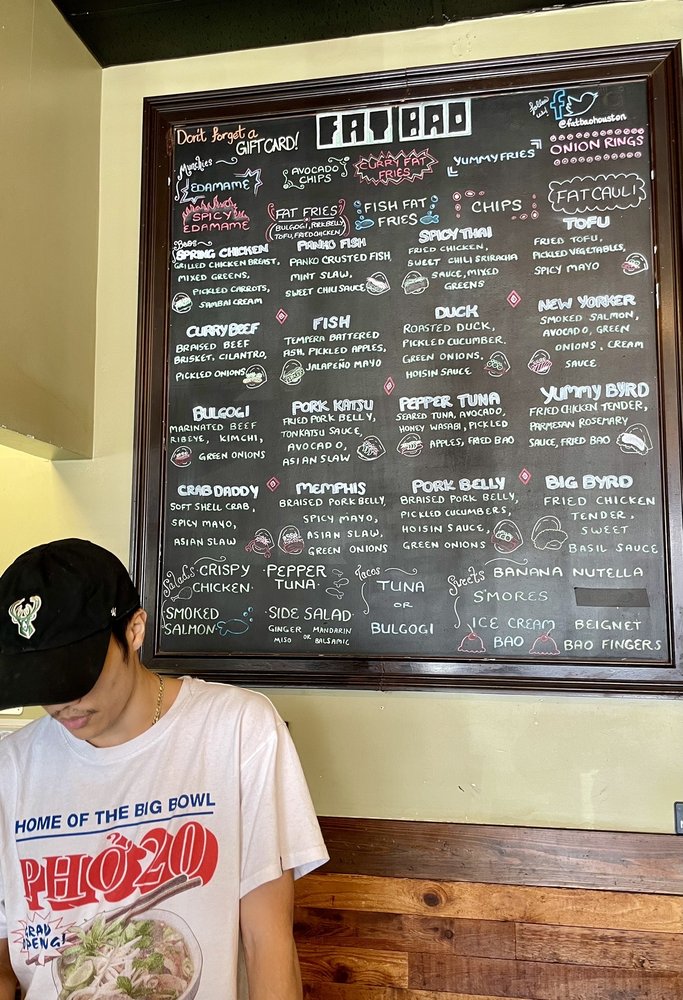 Don't forget a
GIFT CARD!
FAT BAO
follow us!
@fatbaohouston
Munchies
EDAMAME
AVOCADO
CHIPS
CURRY FAT
FRIES
YUMMY FRIES
ONION RINGS
SPICY
EDAMAME
FAT FRIES
BULGOGI, PORK BELLY,
TOFU, FRIED CHICKEN
FISH FAT
FRIES
CHIPS
FAT CAULI
Baos
SPRING CHICKEN
GRILLED CHICKEN BREAST,
MIXED GREENS,
PICKLED CARROTS,
SAMBAI CREAM
PANKO FISH
PANKO CRUSTED FISH,
MINT SLAW,
SWEET CHILI SAUCE
SPICY THAI
FRIED CHICKEN,
SWEET CHILI SRIRACHA
SAUCE, MIXED
GREENS
TOFU
FRIED TOFU,
PICKLED VEGETABLES,
SPICY MAYO
CURRY BEEF
BRAISED BEEF
BRISKET, CILANTRO,
PICKLED ONIONS
FISH
TEMPERA BATTERED
FISH, PICKLED APPLES,
JALAPEÑO MAYO
DUCK
ROASTED DUCK,
PICKLED CUCUMBER,
GREEN ONIONS,
HOISIN SAUCE
NEW YORKER
SMOKED SALMON,
AVOCADO, GREEN
ONIONS, CREAM
SAUCE
BULGOGI
MARINATED BEEF
RIBEYE, KIMCHI,
GREEN ONIONS
PORK KATSU
FRIED PORK BELLY,
TONKATSU SAUCE,
AVOCADO,
ASIAN SLAW
PEPPER TUNA
SEARED TUNA, AVOCADO,
HONEY WASABI, PICKLED
APPLES, FRIED BAO
YUMMY BYRD
FRIED CHICKEN TENDER,
PARMESAN ROSEMARY
SAUCE, FRIED BAO
CRAB DADDY
SOFT SHELL CRAB,
SPICY MAYO,
ASIAN SLAW
MEMPHIS
BRAISED PORK BELLY,
SPICY MAYO,
ASIAN SLAW,
GREEN ONIONS
PORK BELLY
BRAISED PORK BELLY,
PICKLED CUCUMBERS,
HOISIN SAUCE,
GREEN ONIONS
BIG BYRD
FRIED CHICKEN
TENDER,
SWEET
BASIL SAUCE
Salads
CRISPY
CHICKEN
PEPPER
TUNA
SMOKED
SALMON
SIDE SALAD
GINGER MISO OR MANDARIN BALSAMIC
Tacos
TUNA
OR
BULGOGI
Sweets
BANANA NUTELLA
S'MORES
ICE CREAM
BAO
BEIGNET
BAO FINGERS
HOME OF THE BIG BOWL
PHỞ 20